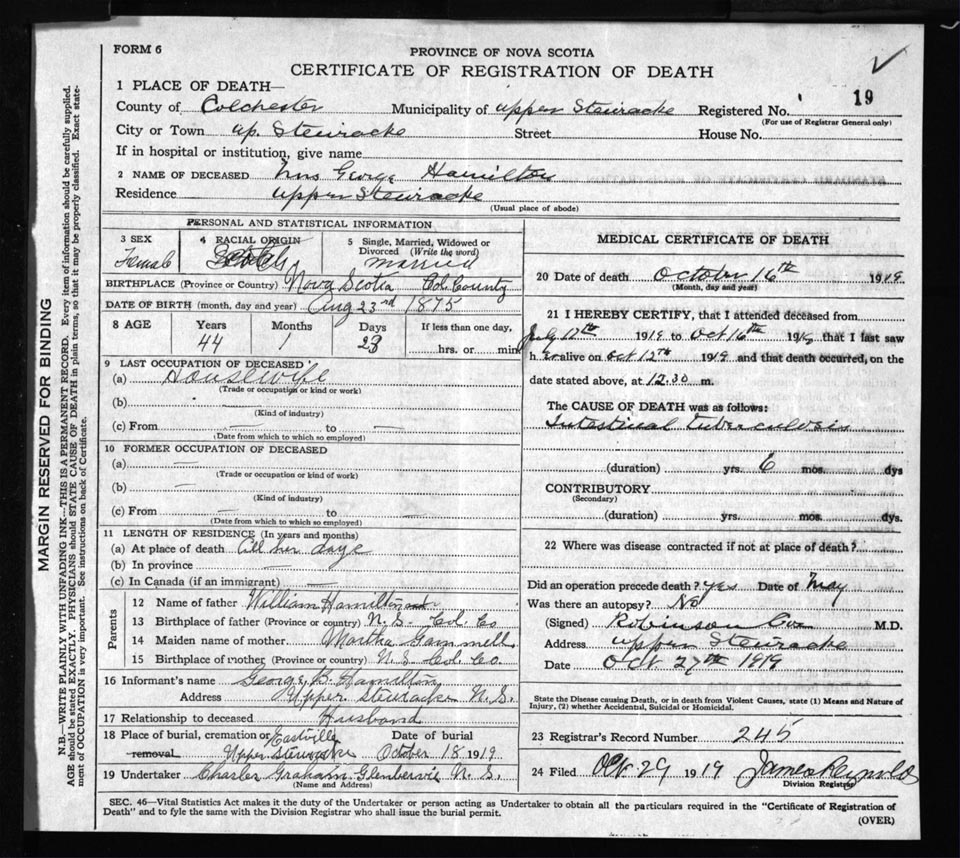 FORM 6
PROVINCE OF NOVA SCOTIA
CERTIFICATE OF REGISTRATION OF DEATH
1 PLACE OF DEATH—
County of Colchester Municipality of Upper Stewiacke Registered No. 19
(For use of Registrar General only)
City or Town Up. Stewiacke Street House No.
If in hospital or institution, give name
2 NAME OF DECEASED Mrs George Hamilton
Residence Upper Stewiacke
(Usual place of abode)
PERSONAL AND STATISTICAL INFORMATION
3 SEX
Female
4 RACIAL ORIGIN
Scotch
5 Single, Married, Widowed or Divorced (Write the word)
Married
BIRTHPLACE (Province or Country) Nova Scotia Col. County
DATE OF BIRTH (month, day and year) Aug 23rd 1875
8 AGE Years Months Days If less than one day,
44 1 23 hrs. or min
9 LAST OCCUPATION OF DECEASED
(a) Housewife
(Trade or occupation or kind or work)
(b)
(Kind of industry)
(c) From — to —
(Date from which to which so employed)
10 FORMER OCCUPATION OF DECEASED
(a) —
(Trade or occupation or kind of work)
(b) —
(Kind of industry)
(c) From — to —
(Date from which to which so employed)
11 LENGTH OF RESIDENCE (In years and months)
(a) At place of death All her days
(b) In province —
(c) In Canada (if an immigrant) —
Parents
12 Name of father William Hamilton
13 Birthplace of father (Province or country) N.S. Col. Co
14 Maiden name of mother Martha Gammell
15 Birthplace of mother (Province or country) N.S Col. Co.
16 Informant's name George B. Hamilton
Address Upper Stewiacke N.S.
17 Relationship to deceased Husband
18 Place of burial, cremation or Eastville Date of burial
removal Upper Stewiacke October 18 1919
19 Undertaker Charles Graham Glenbervie N.S.
(Name and Address)
MEDICAL CERTIFICATE OF DEATH
20 Date of death October 16th 1919
(Month, day and year)
21 I HEREBY CERTIFY, that I attended deceased from
July 12th 1919 to Oct 16th 1919 that I last saw
her alive on Oct 12th 1919 and that death occurred, on the
date stated above, at 12.30 m.
The CAUSE OF DEATH was as follows:
Intestinal tuberculosis
(duration) yrs. 6 mos. dys
CONTRIBUTORY
(Secondary)
(duration) yrs. mos. dys.
22 Where was disease contracted if not at place of death?
Did an operation precede death? yes Date of May
Was there an autopsy? No
(Signed) Robinson Cox M.D.
Address Upper Stewiacke
Date Oct 27th 1919
State the Disease causing Death, or in death from Violent Causes, state (1) Means and Nature of
Injury, (2) whether Accidental, Suicidal or Homicidal.
23 Registrar's Record Number 245
24 Filed Oct 29 1919 James Reynolds
Division Registrar
SEC. 46—Vital Statistics Act makes it the duty of the Undertaker or person acting as Undertaker to obtain all the particulars required in the "Certificate of Registration of
Death" and to fyle the same with the Division Registrar who shall issue the burial permit.
(OVER)
MARGIN RESERVED FOR BINDING
N.B.—WRITE PLAINLY WITH UNFADING INK—THIS IS A PERMANENT RECORD. Every item of information should be carefully supplied.
AGE should be stated EXACTLY. PHYSICIANS should STATE CAUSE OF DEATH in plain terms, so that it may be properly classified. Exact state-
ment of OCCUPATION is very important. See instructions on back of Certificate.